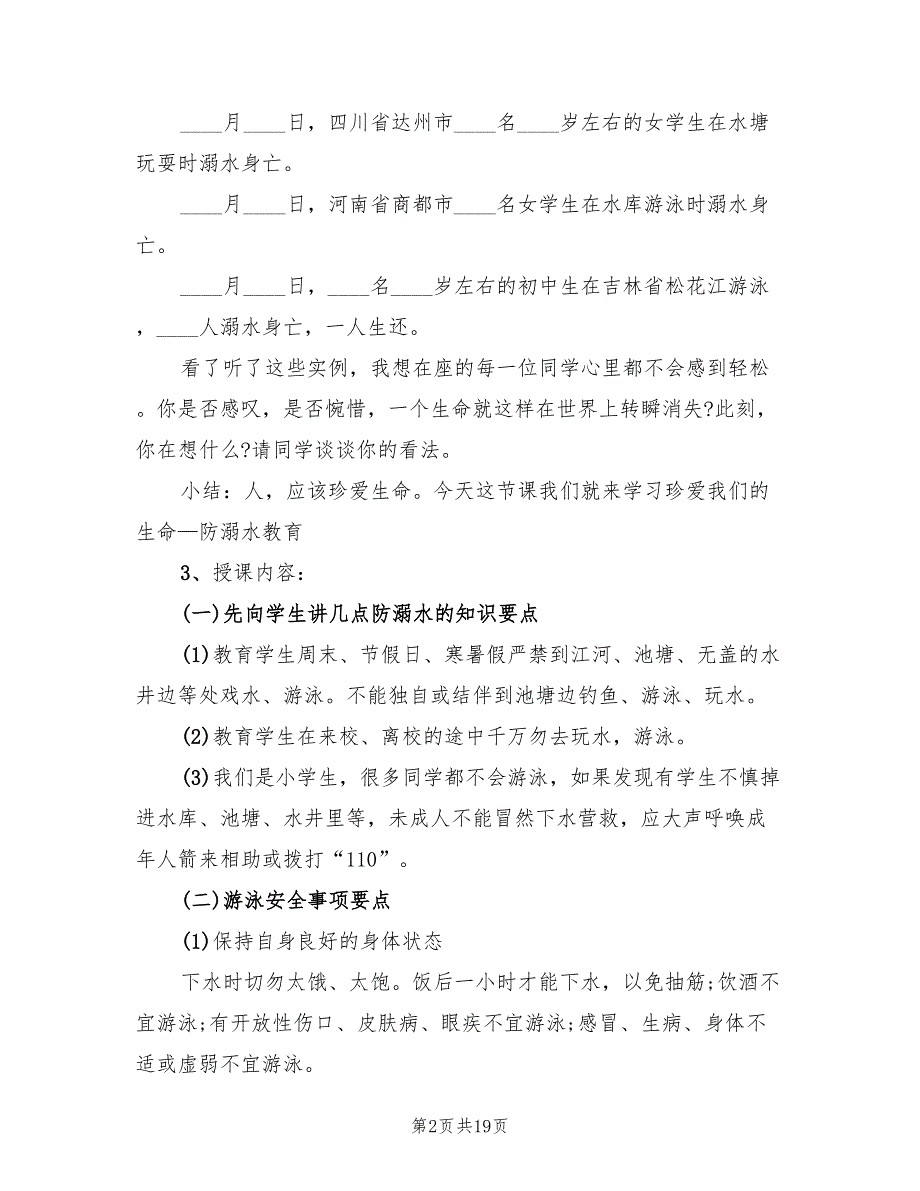 ____月____日，四川省达州市____名____岁左右的女学生在水塘
玩耍时溺水身亡。
____月____日，河南省商都市____名女学生在水库游泳时溺水身
亡。
____月____日，____名____岁左右的初中生在吉林省松花江游泳
，____人溺水身亡，一人生还。
看了听了这些实例，我想在座的每一位同学心里都不会感到轻松
。你是否感叹，是否惋惜，一个生命就这样在世界上转瞬消失?此刻，
你在想什么?请同学谈谈你的看法。
小结：人，应该珍爱生命。今天这节课我们就来学习珍爱我们的
生命—防溺水教育
3、授课内容：
(一)先向学生讲几点防溺水的知识要点
(1)教育学生周末、节假日、寒暑假严禁到江河、池塘、无盖的水
井边等处戏水、游泳。不能独自或结伴到池塘边钓鱼、游泳、玩水。
(2)教育学生在来校、离校的途中千万勿去玩水，游泳。
(3)我们是小学生，很多同学都不会游泳，如果发现有学生不慎掉
进水库、池塘、水井里等，未成人不能冒然下水营救，应大声呼唤成
年人箭来相助或拨打“110”。
(二)游泳安全事项要点
(1)保持自身良好的身体状态
下水时切勿太饿、太饱。饭后一小时才能下水，以免抽筋;饮酒不
宜游泳;有开放性伤口、皮肤病、眼疾不宜游泳;感冒、生病、身体不
适或虚弱不宜游泳。
第2页共19页